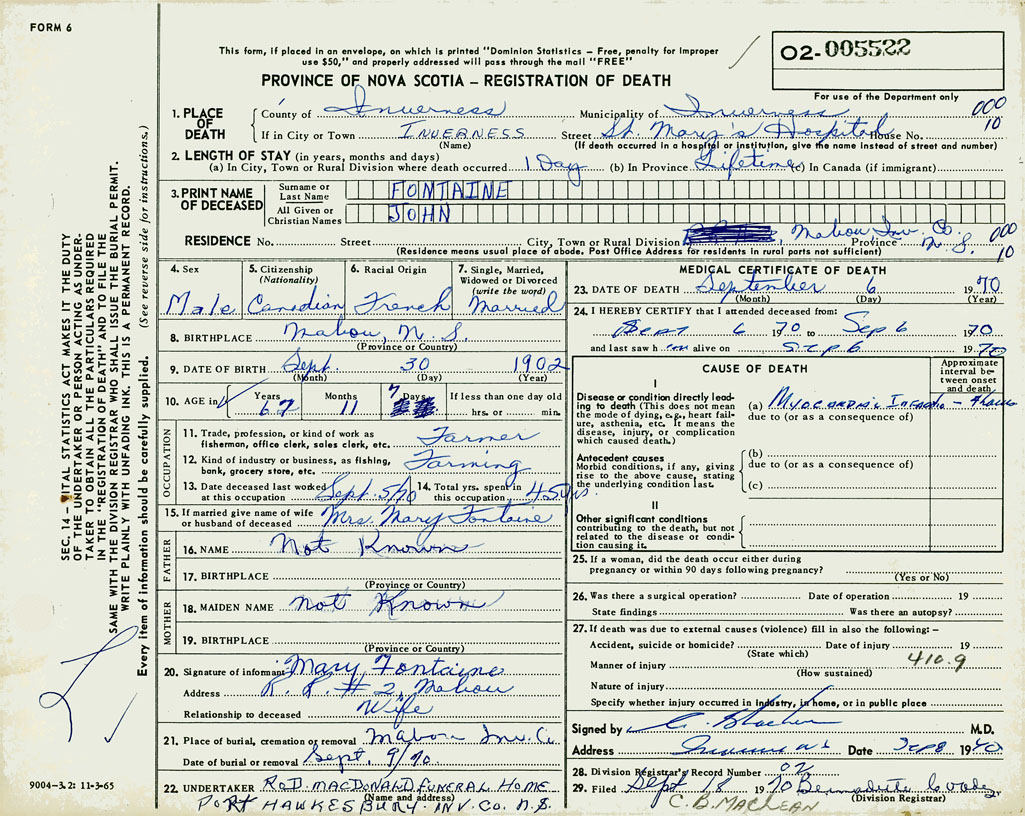 FORM 6
This form, if placed in an envelope, on which is printed "Dominion Statistics – Free, penalty for improper
use $50," and properly addressed will pass through the mail "FREE"
PROVINCE OF NOVA SCOTIA – REGISTRATION OF DEATH
02-005522
For use of the Department only
1. PLACE OF DEATH
County of Inverness Municipality of Inverness 000
If in City or Town INVERNESS Street St. Mary's Hospital House No. 10
(Name) (If death occurred in a hospital or institution, give the name instead of street and number)
2. LENGTH OF STAY (in years, months and days)
(a) In City, Town or Rural Division where death occurred 1 Day (b) In Province Lifetime (c) In Canada (if immigrant)
3. PRINT NAME OF DECEASED
Surname or Last Name FONTAINE
All Given or Christian Names JOHN
RESIDENCE No. Street City, Town or Rural Division Mabou Inv. Co. Province N.S. 000 10
(Residence means usual place of abode. Post Office Address for residents in rural parts not sufficient)
4. Sex Male
5. Citizenship (Nationality) Canadian
6. Racial Origin French
7. Single, Married, Widowed or Divorced (write the word) Married
8. BIRTHPLACE Mabou, N.S.
(Province or Country)
9. DATE OF BIRTH Sept. 30 1902
(Month) (Day) (Year)
10. AGE in Years 67 Months 11 Days 7 If less than one day old
hrs. or min.
OCCUPATION
11. Trade, profession, or kind of work as fisherman, office clerk, sales clerk, etc. Farmer
12. Kind of industry or business, as fishing, bank, grocery store, etc. Farming
13. Date deceased last worked at this occupation Sept. 5/70 14. Total yrs. spent in this occupation 45 yrs.
15. If married give name of wife or husband of deceased Mrs. Mary Fontaine
FATHER
16. NAME Not Known
17. BIRTHPLACE
(Province or Country)
MOTHER
18. MAIDEN NAME Not Known
19. BIRTHPLACE
(Province or Country)
20. Signature of informant Mary Fontaine
Address R.R. #2, Mabou
Relationship to deceased Wife
21. Place of burial, cremation or removal Mabou Inv. Co.
Date of burial or removal Sept. 9/70
22. UNDERTAKER ROD. MACDONALD FUNERAL HOME
(Name and address)
PORT HAWKESBURY. INV. CO. N.S.
MEDICAL CERTIFICATE OF DEATH
23. DATE OF DEATH September 6 1970
(Month) (Day) (Year)
24. I HEREBY CERTIFY that I attended deceased from:
Sept 6 1970 to Sep 6 1970
and last saw h im alive on Sep 6 1970
CAUSE OF DEATH
Approximate interval between onset and death
I
Disease or condition directly leading to death (This does not mean the mode of dying, e.g., heart failure, asthenia, etc. It means the disease, injury, or complication which caused death.)
(a) Myocardial
due to (or as a consequence of)
Antecedent causes
Morbid conditions, if any, giving rise to the above cause, stating the underlying condition last.
(b)
due to (or as a consequence of)
(c)
II
Other significant conditions
contributing to the death, but not related to the disease or condition causing it.
25. If a woman, did the death occur either during
pregnancy or within 90 days following pregnancy?
(Yes or No)
26. Was there a surgical operation? Date of operation 19
State findings Was there an autopsy?
27. If death was due to external causes (violence) fill in also the following: –
Accident, suicide or homicide? Date of injury 19
(State which)
Manner of injury 410.9
(How sustained)
Nature of injury
Specify whether injury occurred in industry, in home, or in public place
Signed by M.D.
Address Date Sep 8 19
28. Division Registrar's Record Number 02
29. Filed Sept 18 1970 Bernadette
C. B. MACLEAN (Division Registrar)
SEC. 14 – VITAL STATISTICS ACT MAKES IT THE DUTY
OF THE UNDERTAKER OR PERSON ACTING AS UNDER-
TAKER TO OBTAIN ALL THE PARTICULARS REQUIRED
IN THE "REGISTRATION OF DEATH" AND TO FILE THE
SAME WITH THE DIVISION REGISTRAR WHO SHALL ISSUE THE BURIAL PERMIT.
WRITE PLAINLY WITH UNFADING INK. THIS IS A PERMANENT RECORD.
Every item of information should be carefully supplied. (See reverse side for instructions.)
9004-3.2: 11-3-65